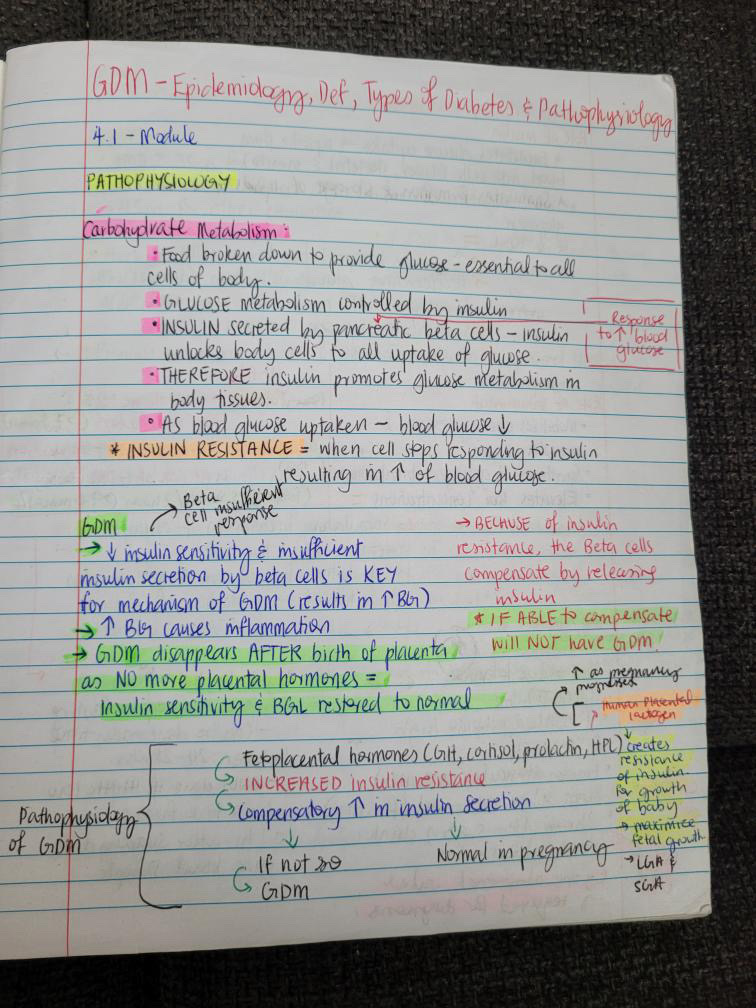 GDM – Epidemiology, Def, Types of Diabetes & Pathophysiology
4.1 – Module
PATHOPHYSIOLOGY
Carbohydrate Metabolism:
• Food broken down to provide glucose – essential to all
cells of body.
• GLUCOSE metabolism controlled by insulin
• INSULIN secreted by pancreatic beta cells – insulin
unlocks body cells to all uptake of glucose.
Response
to ↑ blood
glucose
• THEREFORE insulin promotes glucose metabolism in
body tissues.
• As blood glucose uptaken – blood glucose ↓
* INSULIN RESISTANCE = when cell stops responding to insulin
resulting in ↑ of blood glucose.
GDM
→ Beta
cell insufficient
response
→ ↓ insulin sensitivity & insufficient
insulin secretion by beta cells is KEY
for mechanism of GDM (results in ↑ BG)
→ ↑ BG causes inflammation
→ GDM disappears AFTER birth of placenta
as NO more placental hormones =
insulin sensitivity & BGL restored to normal
→ BECAUSE of insulin
resistance, the Beta cells
compensate by releasing
insulin
* IF ABLE to compensate
will NOT have GDM!
↑ as pregnancy
progresses
Human Placental
lactogen
Pathophysiology
of GDM
Fetoplacental hormones (GH, cortisol, prolactin, HPL)
INCREASED insulin resistance
Compensatory ↑ in insulin secretion
↓
If not so
GDM
↓
Normal in pregnancy
creates
resistance
of insulin
for growth
of baby
→ maximise
fetal growth
→ LGA &
SGA